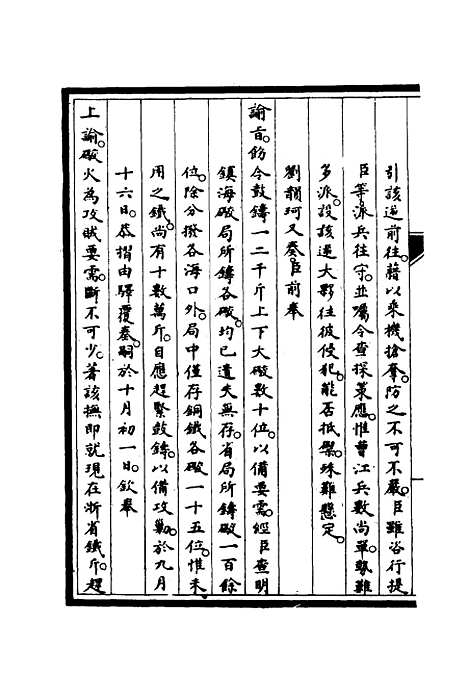 引該逆前往。藉以乘機搶奪。防之不可不嚴。臣雖咨行提
臣等。派兵往守。並囑令查探策應。惟曹江兵數尚單。勢難
多派。設該逆大夥往彼侵犯。能否抵禦。殊難懸定。
劉韻珂又奏。臣前奉
諭旨。飭令鼓鑄一二千斤上下大礮數十位。以備要需。經臣查明
鎮海礮局所鑄各礮。均已遺失無存。省局所鑄礮一百餘
位。除分撥各海口外。局中僅存銅鐵各礮一十五位。惟未
用之鐵。尚有十數萬斤。自應趕緊鼓鑄。以備攻勦。於九月
十六日。恭摺由驛覆奏。嗣於十月初一日。欽奉
上諭。礮火為攻賊要需。斷不可少。著該撫即就現在浙省鐵斤。趕